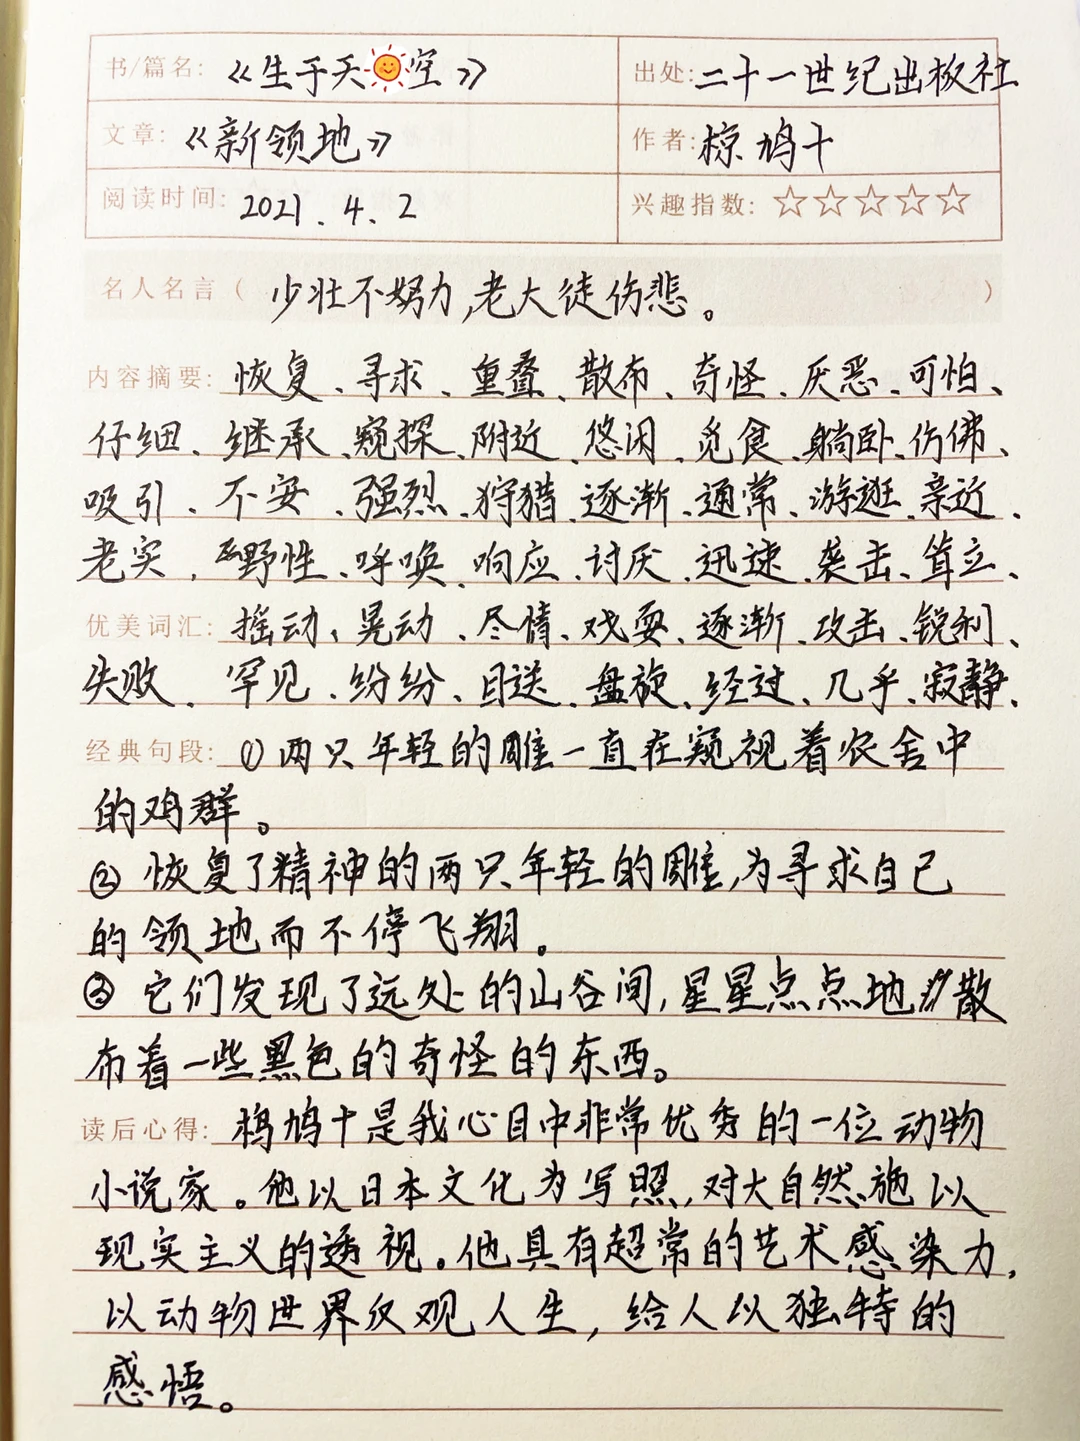 书/篇名: 《生于天空》 出处: 二十一世纪出板社
文章: 《新领地》 作者: 椋鸠十
阅读时间: 2021.4.2 兴趣指数: ☆☆☆☆☆
名人名言( 少壮不努力,老大徒伤悲。 )
内容摘要: 恢复、寻求、重叠、散布、奇怪、厌恶、可怕、
仔细、继承、窥探、附近、悠闲、觅食、躺卧、仿佛、
吸引、不安、强烈、狩猎、逐渐、通常、游逛、亲近、
老实、野性、呼唤、响应、讨厌、迅速、袭击、耸立、
优美词汇: 摇动、晃动、尽情、戏耍、逐渐、攻击、锐利、
失败、罕见、纷纷、目送、盘旋、经过、几乎、寂静、
经典句段: ①两只年轻的雕一直在窥视着农舍中
的鸡群。
②恢复了精神的两只年轻的雕,为寻求自己
的领地而不停飞翔。
③它们发现了远处的山谷间,星星点点地散
布着一些黑色的奇怪的东西。
读后心得: 椋鸠十是我心目中非常优秀的一位动物
小说家。他以日本文化为写照,对大自然施以
现实主义的透视。他具有超常的艺术感染力,
以动物世界反观人生,给人以独特的
感悟。